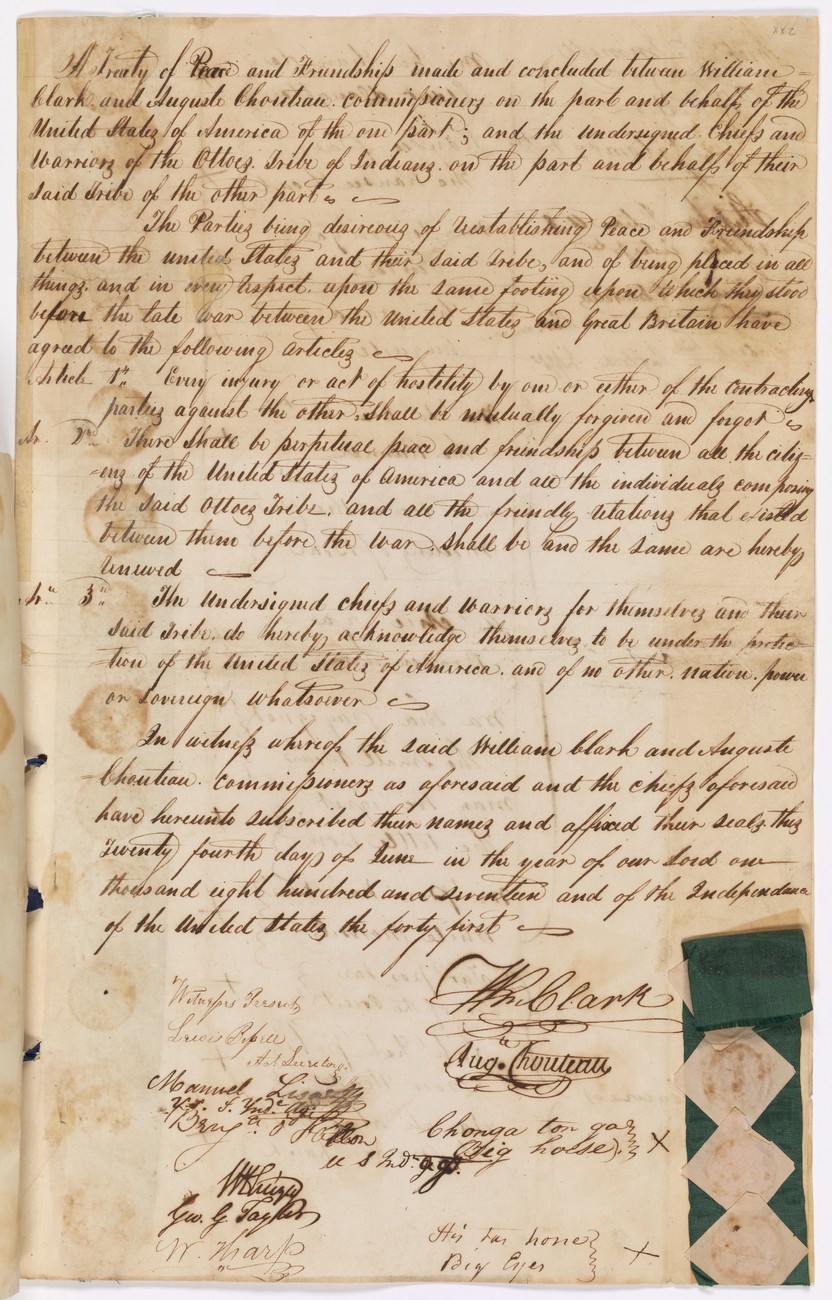 A Treaty of Peace and Friendship made and concluded betwen William =
Clark and Auguste Chouteau. commissioners on the part and behalf, of the
United States of America of the one part; and the undersigned Chiefs and
Warriors of the Ottoes Tribe of Indians. on the part and behalf of their
said Tribe of the other part.
The Parties being desireous of reestablishing Peace and Friendship
between the united States and their said Tribe, and of being placed in all
things. and in every respect. upon the same footing upon which they stood
before the late war between the United States and Great Britain have
agreed to the following articles
Article 1st. Every injury or act of hostility by one or either of the contracting
parties against the other, shall be mutually forgiven and forgot
Ar. 2nd. There shall be perpetual peace and friendship between all the citiz=
=ens of the United States of America and all the individuals composing
the said Ottoes Tribe, and all the friendly relations that existed
between them before the war. shall be and the same are hereby
renewed
Ar. 3d. The undersigned chiefs and warriors for themselves and their
said Tribe. do hereby acknowledge themselves to be under the protec=
tion of the United States of America. and of no other. nation. power
or Sovereign whatsoever
In witness whereof the said William Clark and Auguste
=Chouteau. commissioners as aforesaid and the chiefs aforesaid
have hereunto subscribed their names and affixed their seals. this
Twenty fourth day of June in the year of our Lord one
thousand eight hundred and seventeen and of the Independance
of the United States the forty first
Witnesses Present
Lewis
Act Secretary.
Manuel Lisa
Benj. O Fallon
U S Ind. agt.
Geo. G Taylor
W. Tharp
Wm Clark
Aug. Chouteau
Chonga ton ga
(Big horse) X
Big Eyes X